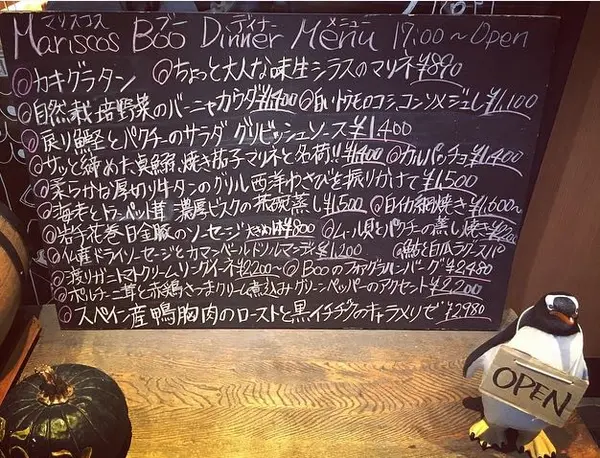 マリスコス ブー ディナー メニュー
Mariscos Boo Dinner Menu 17:00～Open
◎カキグラタン ◎ちょっと大人な味生シラスのマリネ¥890
◎自然栽培野菜のバーニャカウダ¥1,400 ◎白いトウモロコシコンソメジュレ¥1,100
◎戻り鰹とパクチーのサラダ グリビッシュソース¥1,400
◎サッと締めた真鯵、焼き茄子マリネと茗荷!!¥1,400 ◎カルパッチョ¥1,400
◎柔らかな厚切り牛タンのグリル西洋わさびを振りかけて¥1,500
◎海老とトランペット茸 濃厚ビスクの茶碗蒸し¥1,500 ◎白イカ網焼き¥1,600～
◎岩手花巻白金豚のソーセージ大きめ1本¥800 ◎ムール貝とパクチーの蒸し焼き
◎仏産ドライソーセージとカマンベールドノルマンディ¥1,200 ◎鮎と白瓜ラグースパ
◎渡りガニトマトクリームリングイネ¥2200～ ◎Booのフォアグラハンバーグ¥2,480
◎ポルチーニ茸と赤鶏さつまクリーム煮込み グリーンペッパーのアクセント¥2,200
◎スペイン産鴨胸肉のローストと黒イチヂクのキャラメリゼ¥2980
OPEN